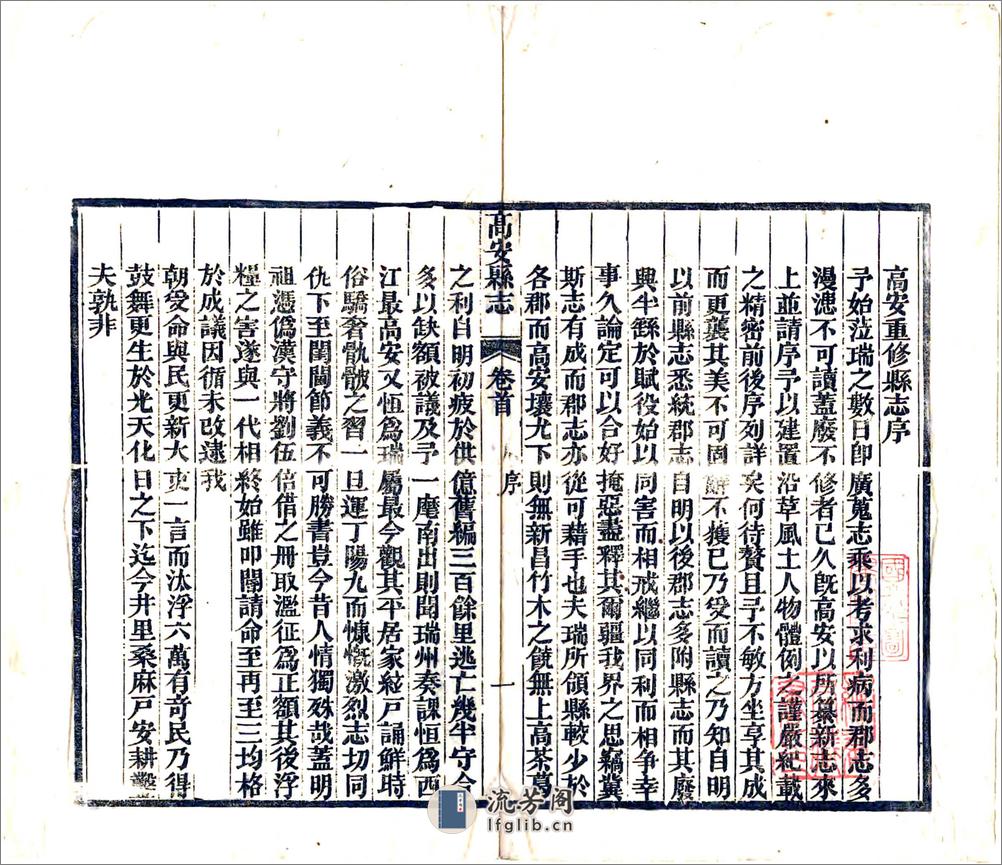 高安重修縣志序
予始涖瑞之數日卽廣蒐志乘以考求利病而郡志多
漫漶不可讀蓋廢不修者已久旣高安以所纂新志來
上並請序予以建置沿革風土人物體例之謹嚴紀載
之精密前後序列詳矣何待贅且予不敏方坐享其成
而更襲其美不可固辭不獲已乃受而讀之乃知自明
以前縣志悉統郡志自明以後郡志多附縣志而其廢
興半繇於賦役始以同害而相戒繼以同利而相爭幸
事久論定可以合好掩惡盡釋其爾疆我界之思竊冀
斯志有成而郡志亦從可藉手也夫瑞所領縣較少於
各郡而高安壤尤下則無新昌竹木之饒無上高茶葛
高安縣志
卷首
序
一
之利自明初疲於供億舊編三百餘里逃亡幾半守令
多以缺額被議及予一麾南出則聞瑞州奏課恒爲西
江最高安又恒爲瑞屬最今觀其平居家絃戶誦鮮時
俗驕奢骫骳之習一旦運丁陽九而慷慨激烈志切同
仇下至閨閫節義不可勝書豈今昔人情獨殊哉蓋明
祖憑僞漢守將劉五倍借之冊取濫征爲正額其後浮
糧之害遂與一代相終始雖叩閽請命至再至三均格
於成議因循未改逮我
朝受命與民更新大吏一言而汰浮六萬有奇民乃得
鼓舞更生於光天化日之下迄今井里桑麻戶安耕鑿
夫孰非
流芳阁
lfglib.cn